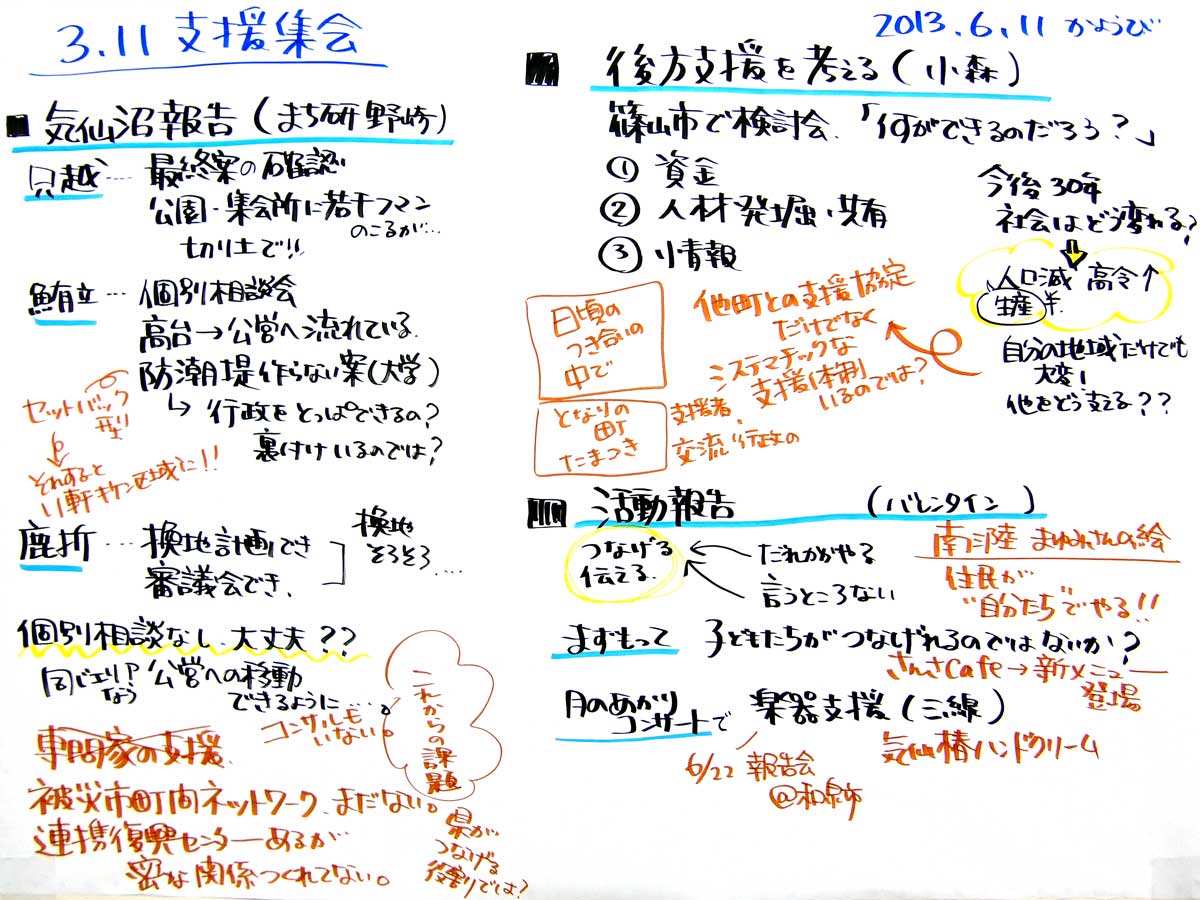 3.11 支援集会
2013.6.11 かようび
■ 気仙沼報告（まち研 野崎）
只越 …… 最終案の確認
公園・集会所に若干フマン
のこるが…
切り土で!!
鮪立 … 個別相談会
高台→公営へ流れている.
防潮堤作らない案(大学)
↳ 行政をとっぱできるの?
裏付けいるのでは?
セットバック
型
それすると
11軒キケン区域に!!
鹿折 … 換地計画でき
審議会でき、
換地
そろそろ…
個別相談なし、大丈夫??
同じエリア
なら
公営への移動
できるように…。
コンサルも
いない。
これからの課題
専門家の支援
被災市町間ネットワーク、まだない。
連携復興センターあるが
密な関係つくれてない。
県が
つなげる
役割りでは?
■ 後方支援を考える（小森）
篠山市で検討会、「何ができるのだろう?」
① 資金
② 人材発掘・共有
③ 情報
今後30年
社会はどう変わる?
人口減 高令↑
生産
自分の地域だけでも
大変!
他をどう支える??
日頃の
つき合いの
中で
となりの
町
たまつき
他町との支援協定
だけでなく
システマチックな
支援体制
いるのでは?
支援者、
交流 行政の
■ 活動報告 （バレンタイン）
つなげる
伝える
← だれかがやる
言うところない
南三陸 まゆみさんの絵
住民が
"自分たち"でやる!!
まずもって 子どもたちがつなげれるのではないか?
さんさcafe→新メニュー
登場
月のあかり
コンサートで 楽器支援（三線）
6/22 報告会
@和泉市
気仙椿ハンドクリーム